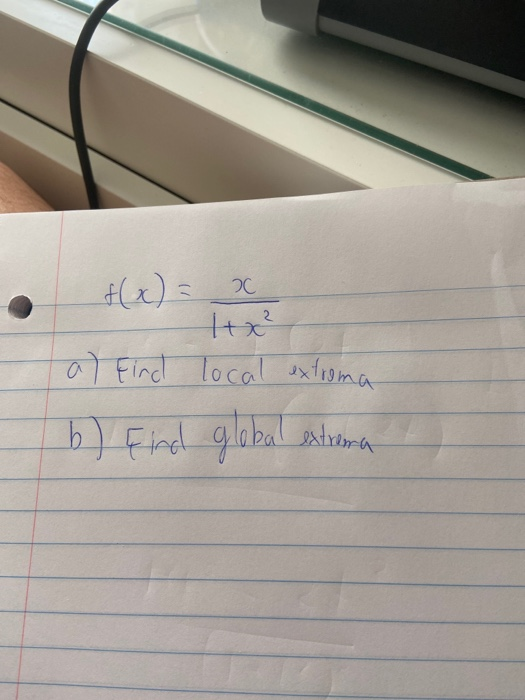 f(x) = x / 1+x²
a) Find local extroma
b) Find global extrema